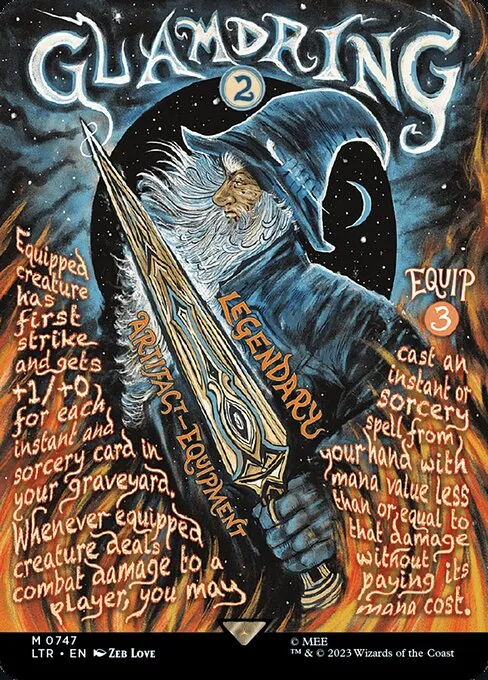 GLAMDRING
2
Equipped
creature
has
first
strike
and gets
+1/+0
for each
instant and
sorcery card in
your graveyard.
Whenever equipped
creature deals
combat damage to a
player, you may
LEGENDARY
ARTIFACT-EQUIPMENT
EQUIP
3
cast an
instant or
sorcery
spell from
your hand with
mana value less
than or equal to
that damage
without
paying its
mana cost.
M 0747
LTR • EN Zeb Love
© MEE
™ & © 2023 Wizards of the Coast